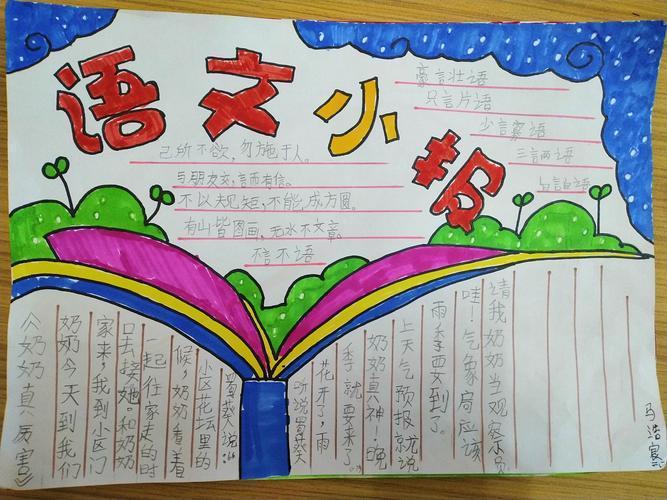 语文小报
己所不欲,勿施于人。
与朋友交,言而有信。
不以规矩,不能成方圆。
有山皆图画,无水不文章。
不言不语
豪言壮语
只言片语
少言寡语
三言两语
自言自语
《奶奶真厉害》
奶奶今天到我们
家来,我到小区门
口去接她。和奶奶
一起往家走的时
候,奶奶看着
小区花坛里的
蜀葵说:“
听说蜀葵
花开了,雨
季就要来了。”
奶奶真神!晚
上天气预报就说
雨季要到了。
哇!气象局应该
请我奶奶当观察员
马浩宸